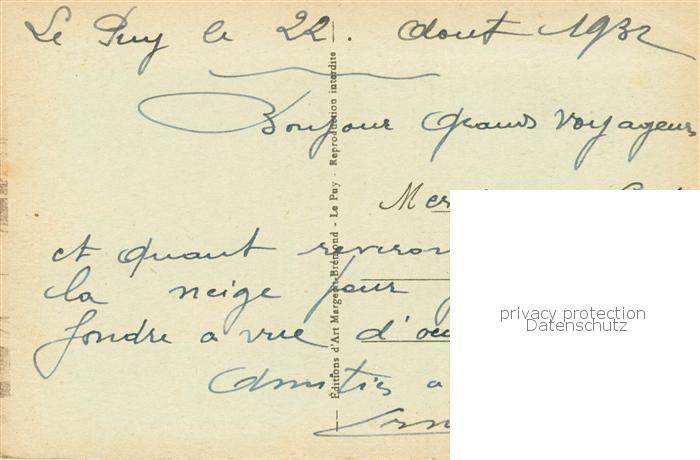 Le Puy le 22. Aout 1932
Bonjour Grands Voyageurs
Mer
et quant
la neige pour
fondre a vue d'oeu
Amitiés a
Éditions d'Art Margerit-Brémond - Le Puy - Reproduction interdite
privacy protection
Datenschutz